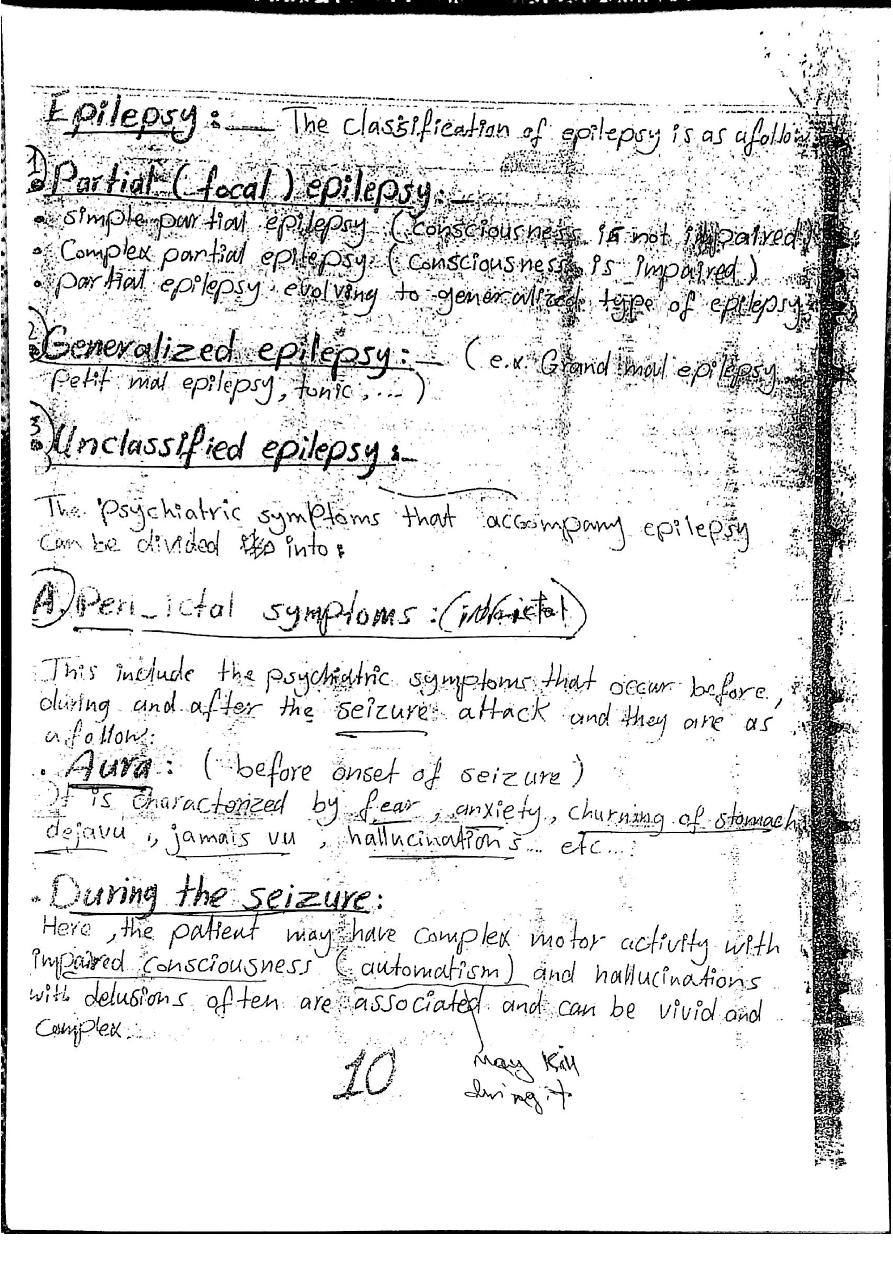 Epilepsy :__ The classification of epilepsy is as afollow
1) Partial (focal) epilepsy:_
• simple partial epilepsy (consciousness is not impaired)
• Complex partial epilepsy (consciousness is impaired)
• partial epilepsy evolving to generalized type of epilepsy
2) Generalized epilepsy:_ (e.x. Grand mal epilepsy
Petit mal epilepsy, tonic, ...)
3) Unclassified epilepsy :_
The Psychiatric symptoms that accompany epilepsy
can be divided into :
A. Peri_ictal symptoms :
This include the psychiatric symptoms that occur before,
during and after the seizure attack and they are as
afollow:
• Aura : (before onset of seizure)
It is characterized by fear, anxiety, churning of stomach
dejavu , jamais vu , hallucinations... etc...
• During the seizure:
Here, the patient may have complex motor activity with
impaired consciousness (automatism) and hallucinations
with delusions often are associated and can be vivid and
complex.
may kill
during it
10